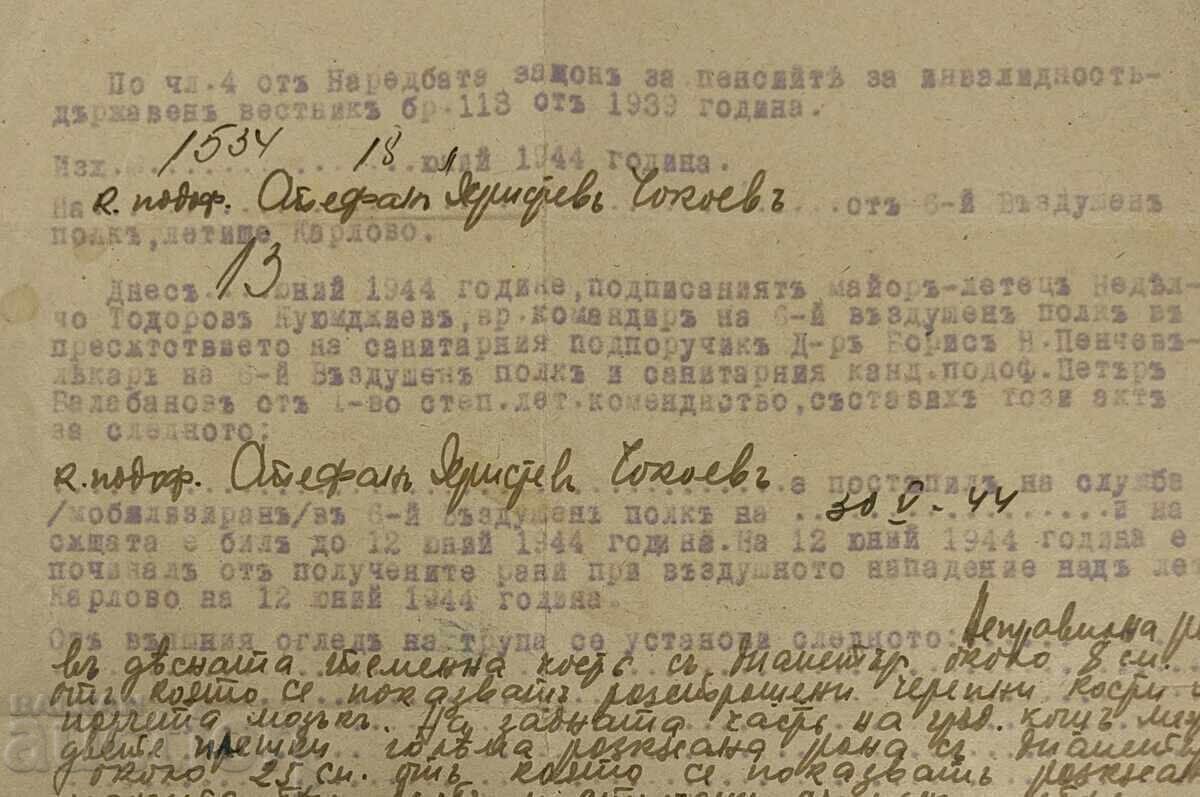 По чл.4 отъ Наредбата законъ за пенсийтѣ за инвалидность-
държавенъ вестникъ бр.113 отъ 1939 година.
Изх. 1534 18 юний 1944 година.
На к. подоф. Стефанъ Христевъ Чокоевъ отъ 6-й Въздушенъ
полкъ,летище Карлово.
Днесъ 13 юний 1944 године,подписаниятъ майоръ-летецъ Недѣл-
чо Тодоровъ Куюмджиевъ,вр.командиръ на 6-й въздушенъ полкъ въ
пресѫтствието на санитарния подпоручик Д-ръ Борисъ Н.Пенчевъ-
лѣкаръ на 6-й Въздушенъ полкъ и санитарния канд.подоф.Петъръ
Балабановъ отъ 1-во степ.лет.комендство,съставихъ този актъ
за следното:
к. подоф. Стефанъ Христевъ Чокоевъ е постъпилъ на служба
/мобилизиранъ/въ 6-й Въздушенъ полкъ на 30 V - 44 и на
сѫщата е билъ до 12 юний 1944 година.На 12 юний 1944 година е
починалъ отъ получените рани при въздушното нападение надъ лет
Карлово на 12 юний 1944 година.
Отъ външния огледъ на трупа се установи следното: Неправилна
въ дѣсната теменна часть съ диаметър около 8 см.
отъ която се показватъ разтрошени черепни кости
мозъкъ. На задната часть на грод. кошъ
плешки голѣма разкъсана рана съ диамет
около 25 см. отъ която се показватъ разкъсан